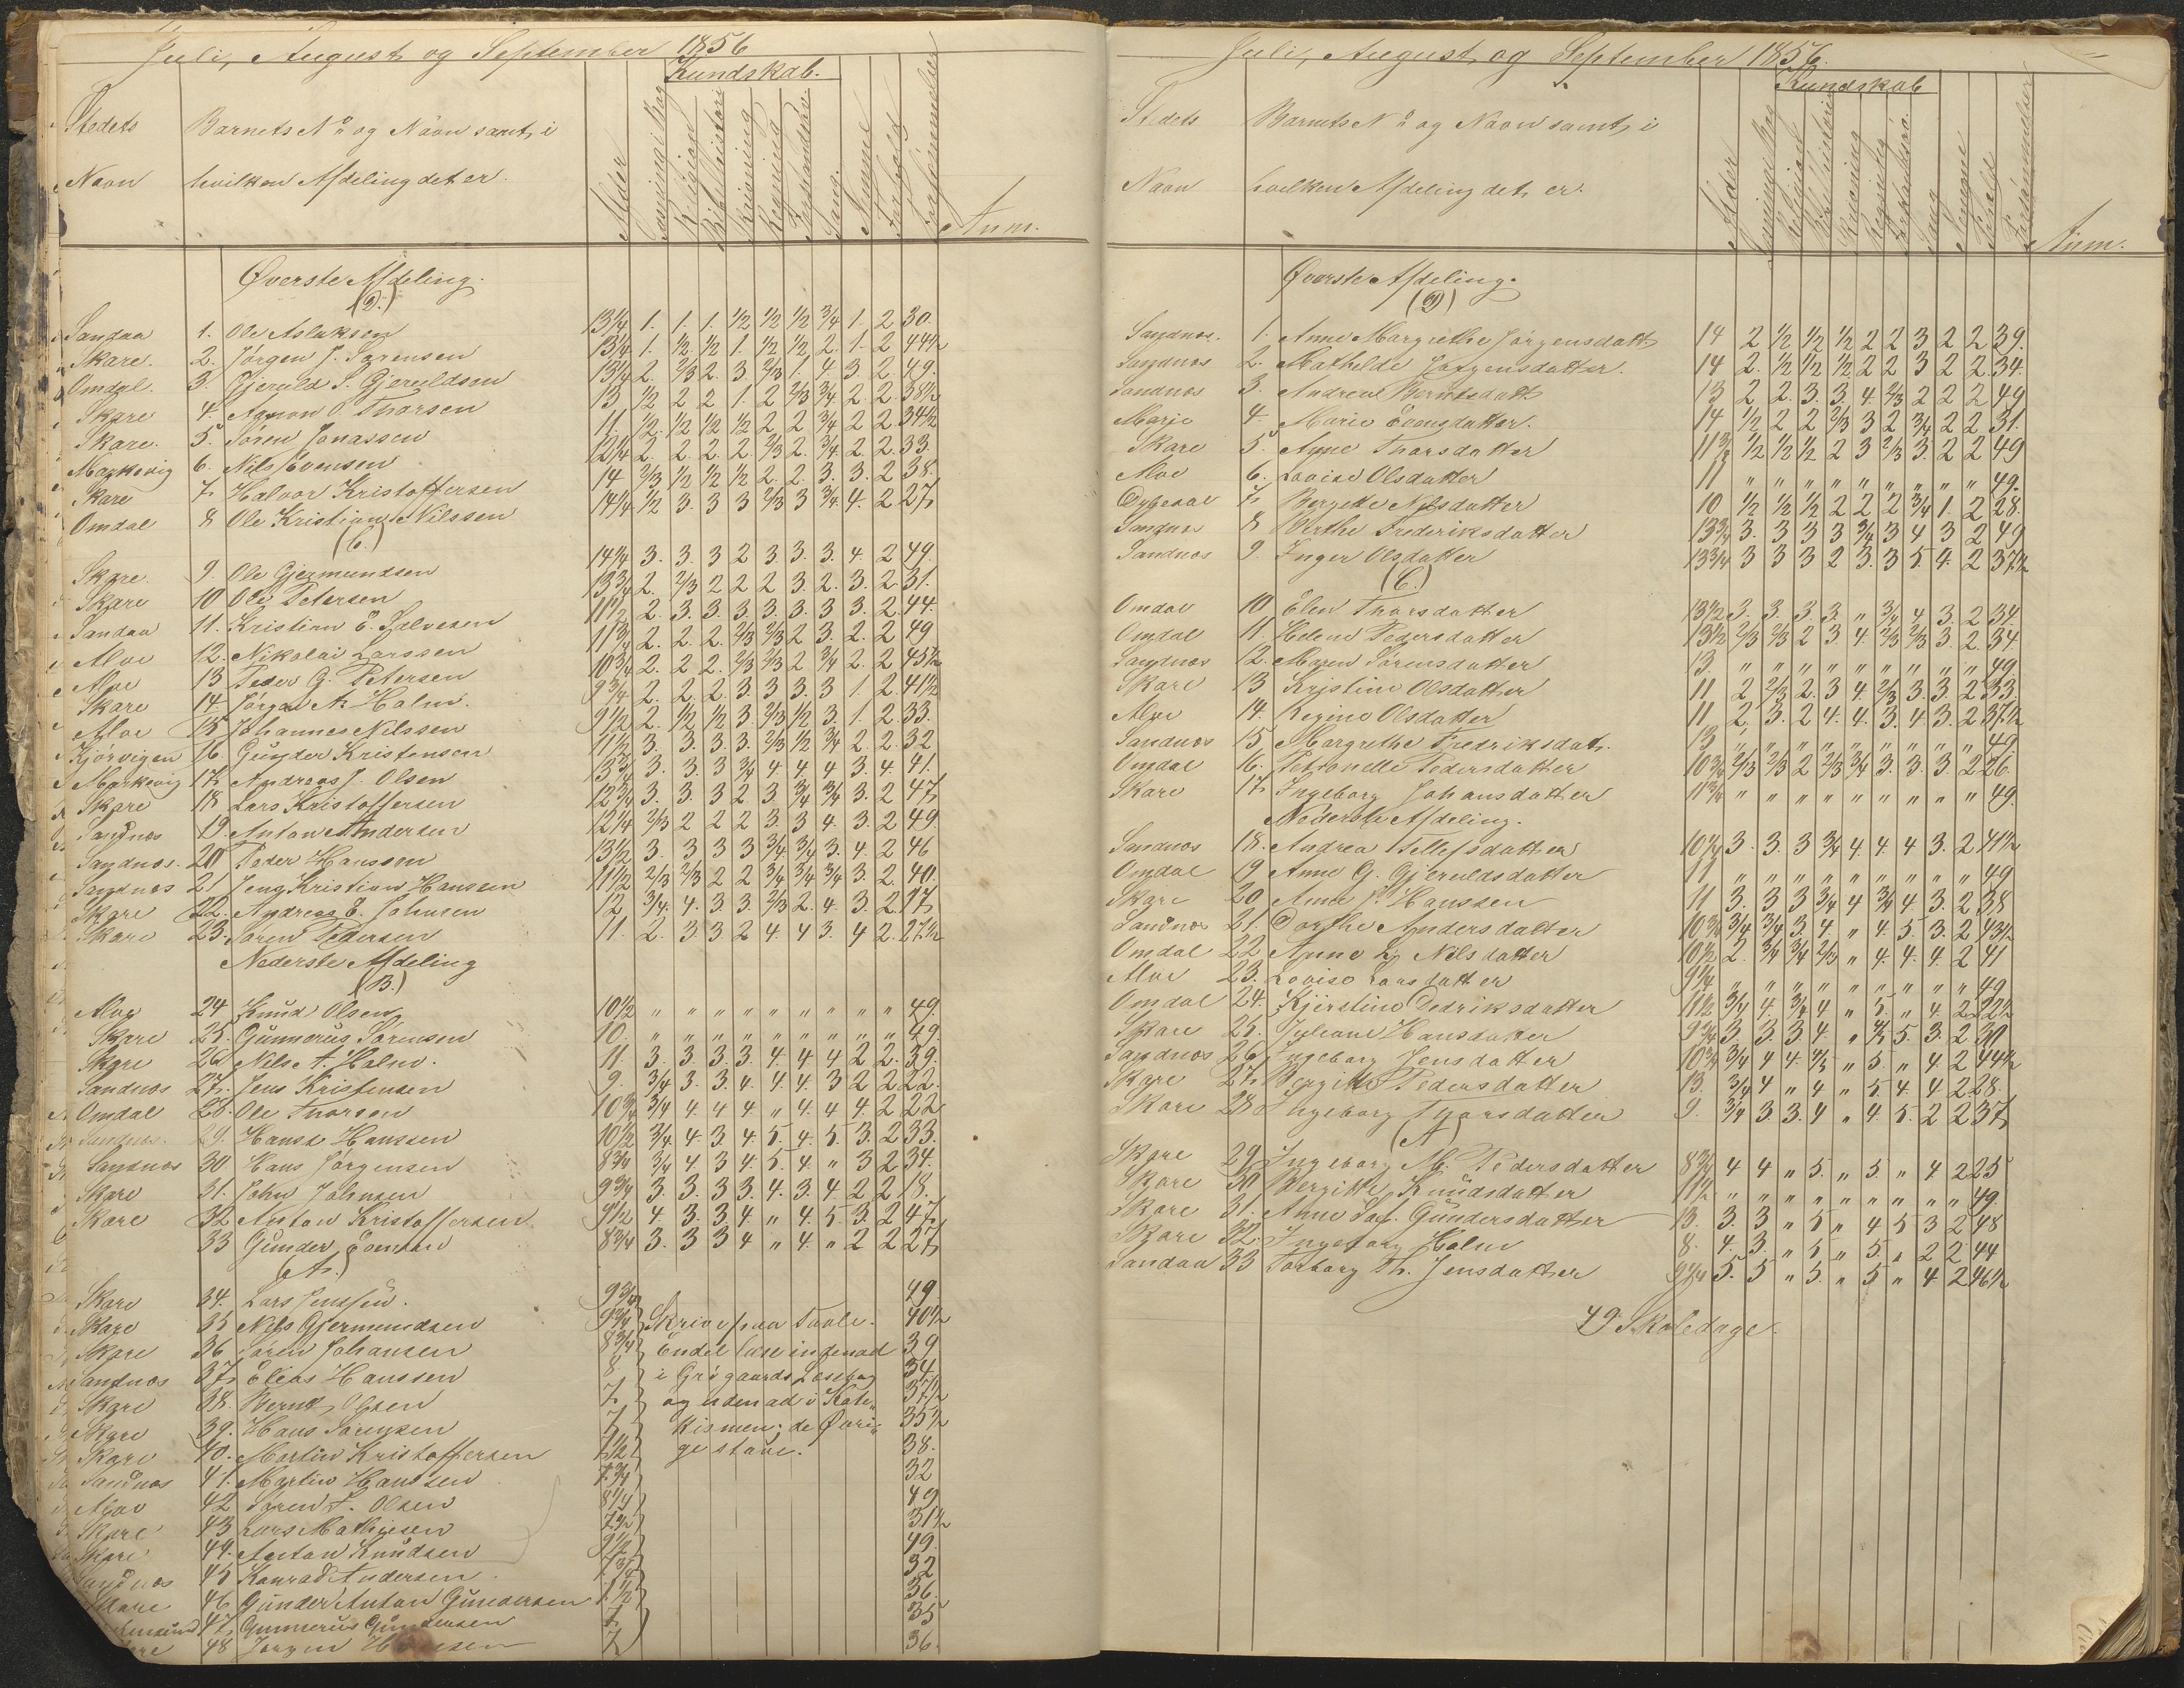 Juli, August og September 1856
Kundskab.
Stedets
Navn
Barnets No og Navn samt i
hvilken Afdeling det er.
Alder
Religion
Bibelhistorie
Skrivning
Regning
Sang.
Anm.
Øverste Afdeling.
(D.)
Sandaa 1. Ole Aslaksen 13 1/4 1. 1. 1. 1/2 1/2 1/2 3/4 1 2 30.
Skare. 2. Jörgen J. Sørensen 13 1/4 1. 1/2 1/2 1. 1/2 1/2 2. 1. 2 44 1/2
Omdal. 3. Gjeruld S. Gjeruldsen 13 1/4 2. 2/3 2. 3 2/3 1. 4. 3. 2. 49.
Skare 4. Aanon O. Thorsen 13 1/2 2 2 1. 2 2/3 3/4 2. 2 38 1/2
Skare. 5. Søren Jonassen 11. 1/2. 1/2 1/2 1/2 2 2. 3/4 2 2 34 1/2
6. Nils Evensen 12 1/4 2. 2. 2. 2. 2/3 2. 3/4. 2. 2. 33.
Skare 7. Halvor Kristoffersen 14 2/3 1/2 1/2 1/2 2. 2. 3. 3. 2 38.
Omdal 8 Ole Kristian Nilssen 14 1/4 1/2 3. 3 3 2/3 3 3/4 4. 2 27
(C.)
Skare. 9. Ole Gjermundsen 14 1/4 3. 3. 3 2 3. 3. 3. 4. 2 49.
Skare 10 Ole Petersen 13 3/4 2. 2/3 2 2 2 3. 2. 3. 2. 31.
Sandaa 11. Kristian E. Salvesen 11 1/2 2. 3. 3. 3 3. 3. 3 3. 2. 44.
Alve 12. Nikolai Larssen 11 3/4 2. 2. 2. 2/3 2/3 2 3. 2. 2 49
Alve 13 Peder G. Petersen 10 3/4 2. 2 2. 2/3 2/3 2 3/4 2. 2 45 1/2
Skare 14. Jörgen A. Holm. 9 3/4 2. 2. 2. 3. 3 3. 3 1. 2. 41 1/2
Alve 15 Johannes Nilssen 9 1/2 2. 1/2 1/2 3. 2/3 1/2 3. 1. 2. 33.
Kjörvigen 16. Gunder Kristensen 11 1/2 3. 3. 3. 3. 2/3 1/2 3/4 2. 2. 32
17. Andreas J. Olsen 13 3/4 3. 3. 3 3/4 4. 4. 4 3. 4. 41.
Skare 18 Lars Kristoffersen 12 3/4 3. 3. 3 2 3 3/4 3/4 3. 2 47
Sandnes 19. Anton Andersen 12 1/4 2/3 2 2 2 3. 3 4. 3. 2 49.
Sandnes. 20 Peder Hanssen 13 1/2 3. 3 3 3 3/4 3/4 3. 4. 2 46
Sandnes 21 Jens Kristian Hanssen 11 1/2 2/3 2/3 2 2 3/4 3/4 3/4 3. 2. 40.
Skare 22. Andreas E. Johnsen 12 3/4. 4. 3. 3. 2/3 2. 4. 3. 2. 17
Skare 23. Søren Pedersen 11. 2. 3. 3. 2 4. 4 3. 4 2. 27 1/2
Nederste Afdeling
(B.)
Alve 24 Knud Olsen 10 1/2 " " " " " " " " " 49.
Skare 25. Gunnerius Sörensen 10. " " " " " " " " " 49
Skare 26. Nils A. Holm. 11 3. 3. 3 3. 4. 4 4 2 2. 39.
Sandnes 27. Jens Kristensen 9. 3/4 3. 3. 4. 4. 4. 3 2 2 22.
Omdal 28. Ole Thorsen 10 3/4 3/4 4. 4 4. " 4. 4 4. 2 22
Sandnes. 29. Hans Hanssen 10 1/2 3/4. 4. 3 4. 5. 4. 5. 3. 2 33.
Sandnes 30 Hans Jörgensen 8 3/4 3/4 4. 3 4. 5. 4. " 3 2 34.
Skare 31. John Johnsen 9 3/4 3. 3. 3 3. 4. 3. 4. 2 2 18.
Skare 32 Anton Kristoffersen 9 1/2 4. 3. 3 4. " 4. 5. 3. 2 47.
33 Gunder Evensen 8 3/4 3. 3 3 4 " 4. " 2 2 27
(A.)
Skare 34. Lars Jenssen. 9 3/4 49
Skare 35 Nils Gjermundsen 9 3/4 Skrive paa Tavle. 40 1/2
Skare 36 Søren Johansen 8 3/4 Endel læse indenad 39
Sandnes 37. Elias Hanssen 8 i Grøgaards Læsebog 34.
Skare 38. Bernt Olsen 7 og udenad i Kate- 37 1/2
Skare 39. Hans Sørensen 7 kismen; de Øvri- 35 1/2
Skare 40. Martin Kristoffersen 7 1/2 ge stave. 38.
Sandnes 41. Martin Hanssen 7 3/4 32
42 Søren T. Olsen 8 1/4 49
Skare 43 Lars Mathiesen 31 1/2
Skare 44. Anton Knudsen 9 1/2 49.
Sandnes 45 Konrad Andersen. 32
Skare 46 Gunder Anton Gundersen 7 1/2 36.
47. Gunnerius Gundersen 7. 35
48 Jörgen 7 36.
Juli, August og September 1856.
Kundskab
Stedets
Navn
Barnets No og Navn samt i
hvilken Afdeling det er.
Alder
Religion
Skrivning
Regning
Sang
Anm.
Øverste Afdeling.
(D)
Sandnes. 1. Anne Margrethe Jörgensdatt 14 2 1/2 1/2 1/2 2 2 3 2 2 39.
Sandnes 2. Mathilde Jörgensdatter. 14 2. 1/2 1/2 1/2 2 2 3 2 2. 34.
Sandnes 3. Andrea Berntsdatt 13 2 2. 3. 3. 4. 2/3 2 2 2 49
4. Marie Evensdatter. 14 1/2 2 2 2/3 3 2 3/4 2 2 31.
Skare 5. Anne Thorsdatter 11 3/4 1/2 1/2 1/2 2 3 2/3 3. 2 2 49
Alve 6. Lovise Olsdatter 11 " " " " " " " " " 49.
7. Bergitte Nilsdatter 10 1/2 1/2 1/2 2 2 2 3/4 1. 2 28.
Sandnes 8 Berthe Frederiksdatter 13 3/4 3. 3 3 3 3/4 3 4 3 2 49
Sandnes 9. Inger Olsdatter 13 3/4 3 3 3 2 3. 3 5. 4. 2 37 1/2
(C.)
Omdal 10 Elen Thorsdatter 13 1/2 3. 3. 3. 3 " 3/4 4. 3. 2 34.
Omdal 11. Helene Pedersdatter 13 1/2 2/3 2/3 2 3. 4. 2/3 2/3 3. 2. 34.
Sandnes 12. Maren Sörensdatter 13 " " " " " " " " " 49
Skare 13 Kristine Olsdatter 11 2 2/3 2. 3 4 2/3 3. 3 2 33.
Alve 14. Regine Olsdatter 11 2. 3. 2 4. 4. 3. 4 3. 2 37 1/2
Sandnes 15 Margrethe Fredriksdatt. 13 " " " " " " " " " 49
Omdal 16. Petronelle Pedersdatter 10 3/4 2/3 2/3 2 2/3 3/4 3. 3. 3. 2 26.
Skare 17 Ingeborg Johansdatter 11 3/4 " " " " " " " " " 49.
Nederste Afdeling.
Sandnes 18. Andrea Tellefsdatter 10 1/4 3. 3. 3 3/4 4. 4. 4 3. 2 41 1/2
Omdal 19 Anne G. Gjeruldsdatter 11 " " " " " " " " " 49
Skare 20 Anne P. Hanssen 11 3. 3 3 3/4 4 3/4 4. 3. 2 38
Sandnes 21. Dorthe Andersdatter 10 3/4 3/4 3/4 3. 4. " 4. 5. 3. 2 43 1/2
Omdal 22 Anne L. Nilsdatter 10 1/2 2. 3/4 3/4 2/3 " 4. 4. 4. 2 41
Alve 23. Lovise Larsdatter 9 1/4 " " " " " " " " " 49
Omdal 24. Kjerstine Dedriksdatter 11 1/2 3/4 4. 3/4 4 " 5. " 4. 2 22 1/2
Skare 25. Juliane Hansdatter 9 3/4 3. 3. 3. 4. " 4. 5. 3. 2 30
Sandnes 26 Ingeborg Jensdatter 10 3/4 3/4 4 4. " 5. " 4. 2 44 1/2
Skare 27 Bergitte Pedersdatter 13. 3/4 4 " 4 " 5. 4. 4 2 28.
Skare 28 Ingeborg Thorsdatter 9. 3/4 3. 3. 4 " 4. 5. 2 2 37
(A)
Skare 29. Ingeborg M. Pedersdatter 8 3/4 4 4 " 5. " 5. " 4 2 25
Skare 30 Bergitte Knudsdatter 11 1/2 " " " " " " " " " 49.
Skare 31. Anne Sof. Gundersdatter 13. 3. 3 " 5 " 4 5 3 2 48
Skare 32. Ingeborg Holm 8. 4. 3. " 5 " 5. " 2 2 44
Sandaa 33 Torborg Th. Jensdatter 9 1/4 5. 5 " 5. " 5 " 4 2 46 1/2
49 Skoledage.